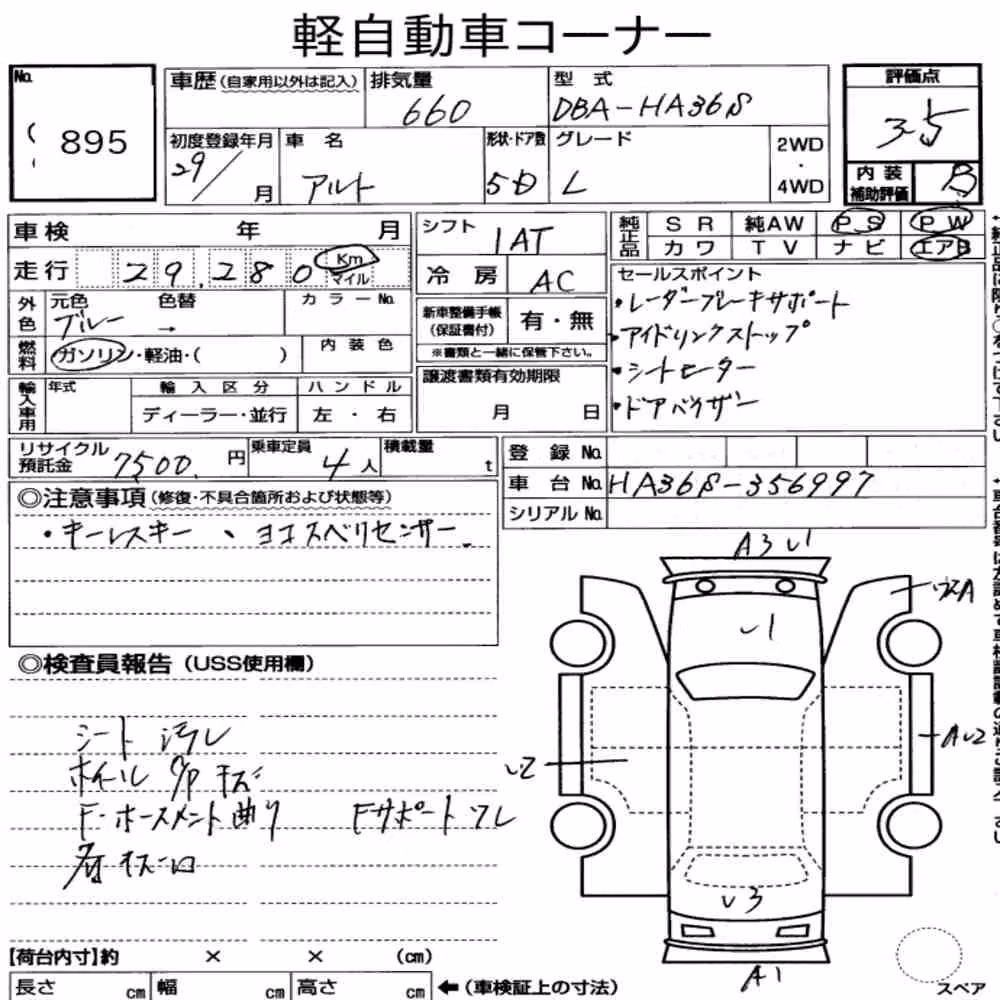 軽自動車コーナー
No. 895
車歴(自家用以外は記入)
排気量 660
型式 DBA-HA36S
評価点 3.5
初度登録年月 29/ 月
車名 アルト
形状・ドア数 5D
グレード L
2WD・4WD
内装補助評価 B
車検 年 月
シフト IAT
純正品 SR 純AW PS PW
カワ TV ナビ エアB
走行 29,280 Km マイル
冷房 AC
セールスポイント
・レーダーブレーキサポート
・アイドリングストップ
・シートヒーター
・ドアバイザー
外色 元色 ブルー 色替 → カラーNo.
新車整備手帳(保証書付) 有・無
※書類と一緒に保管下さい。
燃料 ガソリン・軽油・( ) 内装色
譲渡書類有効期限 月 日
輸入車用 年式 輸入区分 ハンドル
ディーラー・並行 左・右
リサイクル預託金 7500. 円
乗車定員 4人
積載量 t
登録No.
車台No. HA36S-356997
シリアルNo.
◎注意事項(修復・不具合箇所および状態等)
・キーレスキー、ヨコスベリセンサー.
◎検査員報告(USS使用欄)
シート 汚レ
ホイール キズ
F・ホースメント曲り Fサポートワレ
A3 U1
U1
AU2
U2
U3
A1
【荷台内寸】約 × × (cm)
長さ cm 幅 cm 高さ cm ←(車検証上の寸法)
スペア